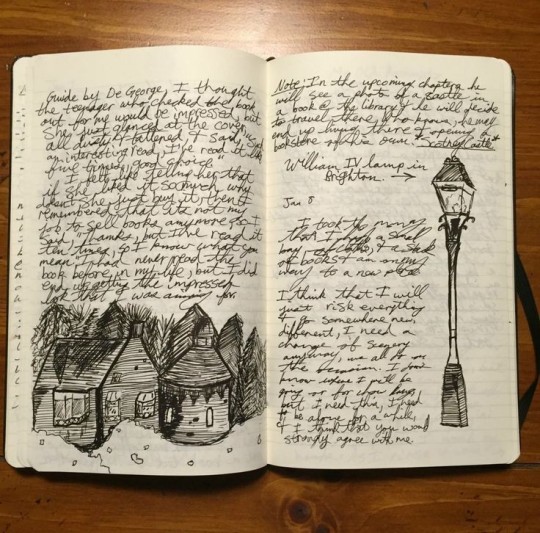 Guide by De George, I thought
the teenager who checked the book
out for me would be impressed, but
she just glanced at the cover,
all dusty & tattered, & said, "Such
an interesting read, I've read it like
five times, good choice"
I felt like telling her that
if she liked it so much why
doesn't she just buy it, then I
remembered that it's not my
job to sell books anymore, so I
said "Thanks, but I've read it
ten times, so I know what you
mean." I had never read the
book before in my life, but I did
end up getting the impressed
look that I was aiming for.
Note: In the upcoming chapters he
will see a photo of a castle in
a book @ the library & he will decide
to travel there, who knows, he may
end up living there & opening a
bookstore of his own. Scotney Castle
William IV lamp in
Brighton. →
Jan 8
I took the money
that I had, a small
bag & a stack
of books & am on my
way to a new place
I think that I will
just risk everything
& go somewhere new,
different, I need a
change of scenery
anyway, we all do on
the occasion. I don't
know where I will be
or for how long,
but I need this, I need
to be alone for a while,
& I think that you would
strongly agree with me.